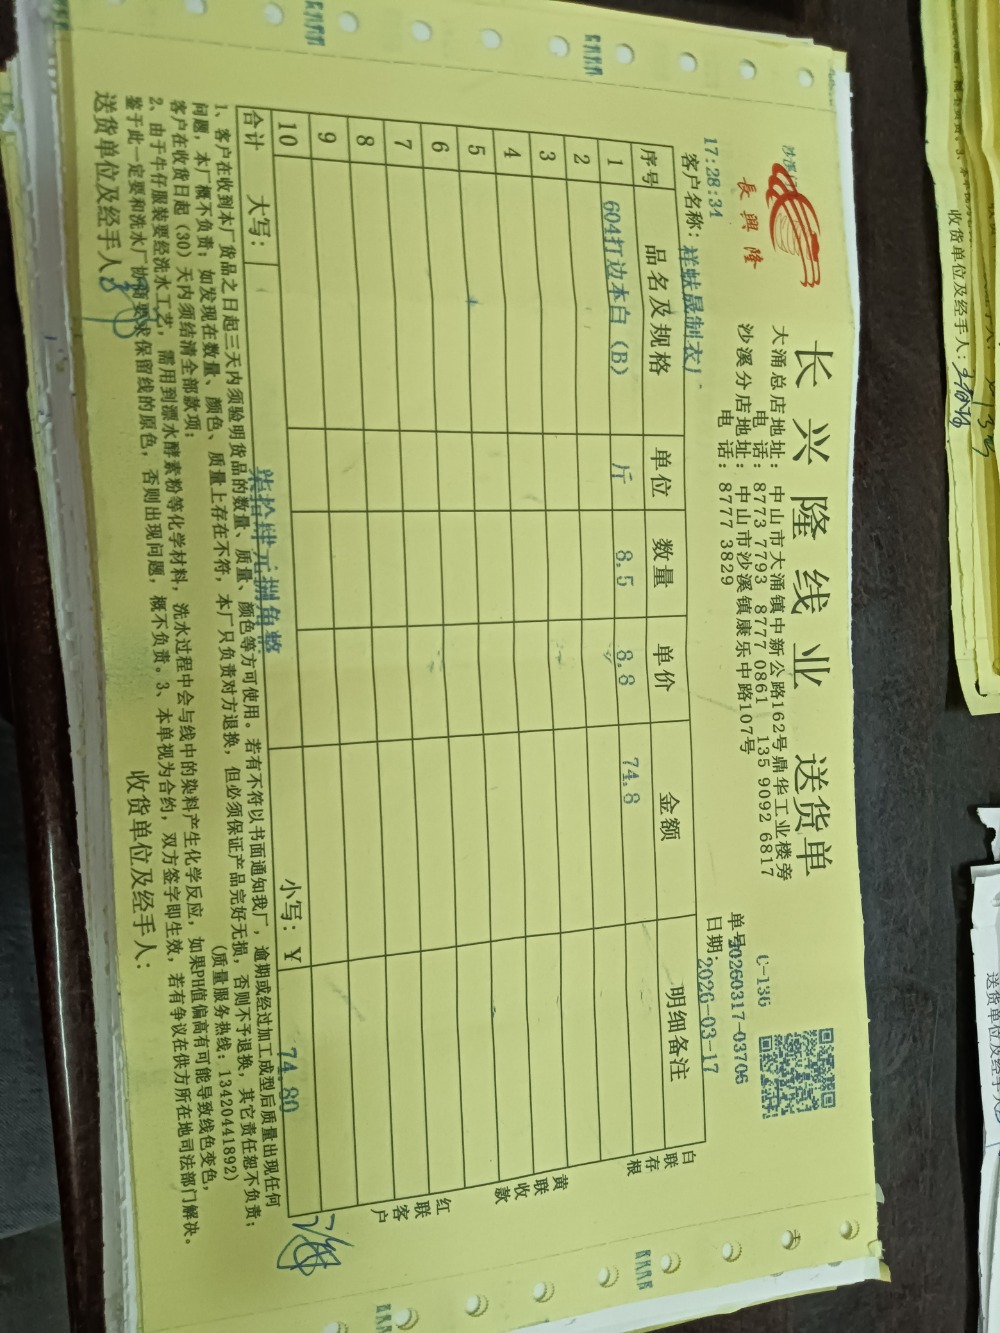 長興隆
长兴隆线业 送货单
大涌总店地址：中山市大涌镇中新公路162号鼎华工业楼旁
电话：8773 7793 8777 0861 135 9092 6817
沙溪分店地址：中山市沙溪镇康乐中路107号
电话：8777 3829
C-136
单号20260317-03706
日期:2026-03-17
17:28:34
客户名称：祥 晟制衣厂
序号 品名及规格 单位 数量 单价 金额 明细备注
1 604打边本白（B） 斤 8.5 8.8 74.8
2
3
4
5
6
7
8
9
10
合计 大写： 柒拾肆元捌角整 小写：￥ 74.80
白联存根
黄联收款
红联客户
1、客户在收到本厂货品之日起三天内须验明货品的数量、质量、颜色等方可使用。若有不符以书面通知我厂，逾期或经过加工成型后质量出现任何
问题，本厂概不负责；如发现在数量、颜色、质量上存在不符，本厂只负责对方退换，但必须保证产品完好无损，否则不予退换，其它责任恕不负责；
客户在收货日起（30）天内须结清全部款项； （质量服务热线：13420441892）
2、由于牛仔服装要经洗水工艺，需用到漂水酵素粉等化学材料，洗水过程中会与线中的染料产生化学反应，如果PH值偏高有可能导致线色变色，
鉴于此一定要和洗水厂协商要求保留线的原色，否则出现问题，概不负责。3、本单视为合约，双方签字即生效，若有争议在供方所在地司法部门解决。
送货单位及经手人： 收货单位及经手人：
收货单位及经手人：
送货单位及经手人